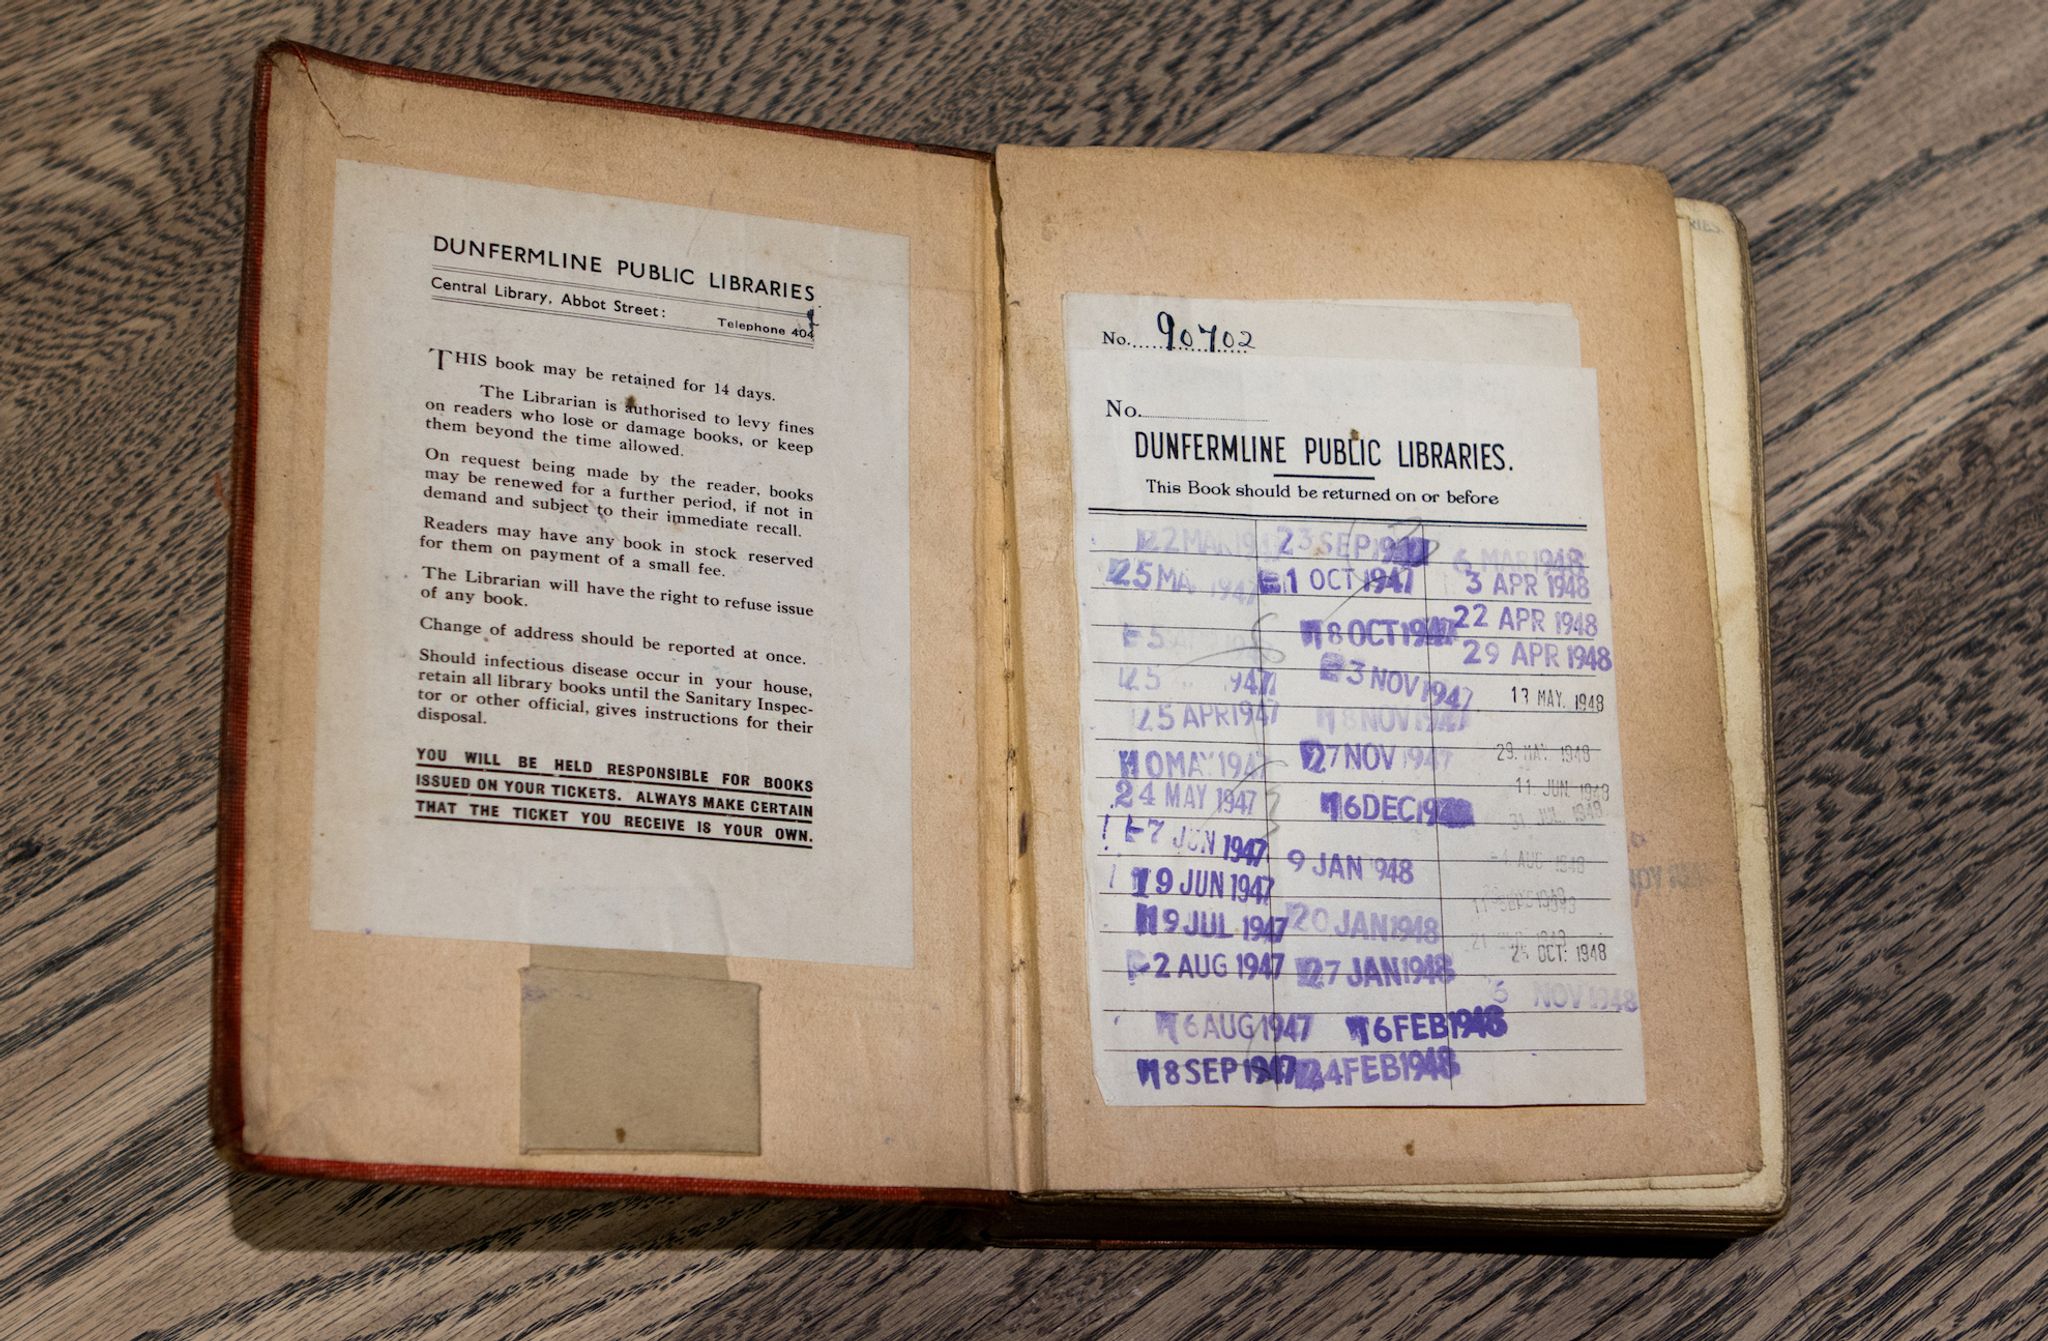 DUNFERMLINE PUBLIC LIBRARIES
Central Library, Abbot Street:
Telephone 404
THIS book may be retained for 14 days.
The Librarian is authorised to levy fines
on readers who lose or damage books, or keep
them beyond the time allowed.
On request being made by the reader, books
may be renewed for a further period, if not in
demand and subject to their immediate recall.
Readers may have any book in stock reserved
for them on payment of a small fee.
The Librarian will have the right to refuse issue
of any book.
Change of address should be reported at once.
Should infectious disease occur in your house,
retain all library books until the Sanitary Inspec-
tor or other official, gives instructions for their
disposal.
YOU WILL BE HELD RESPONSIBLE FOR BOOKS
ISSUED ON YOUR TICKETS. ALWAYS MAKE CERTAIN
THAT THE TICKET YOU RECEIVE IS YOUR OWN.
No. 90702
No.
DUNFERMLINE PUBLIC LIBRARIES.
This Book should be returned on or before
25 APR 1947
24 MAY 1947
7 JUN 1947
9 JUN 1947
9 JUL 1947
2 AUG 1947
6 AUG 1947
8 SEP 1947
23 SEP
1 OCT 1947
8 OCT 1947
3 NOV 1947
8 NOV 1947
27 NOV 1947
6 DEC
9 JAN 948
20 JAN 1948
27 JAN 1948
6 FEB 1948
24 FEB 1948
6 MAR 1948
3 APR 1948
22 APR 1948
29 APR 1948
13 MAY. 1948
MAY. 1948
11 JUN. 1948
31 JUL. 1948
AUG 1948
OCT. 1948
NOV 1948